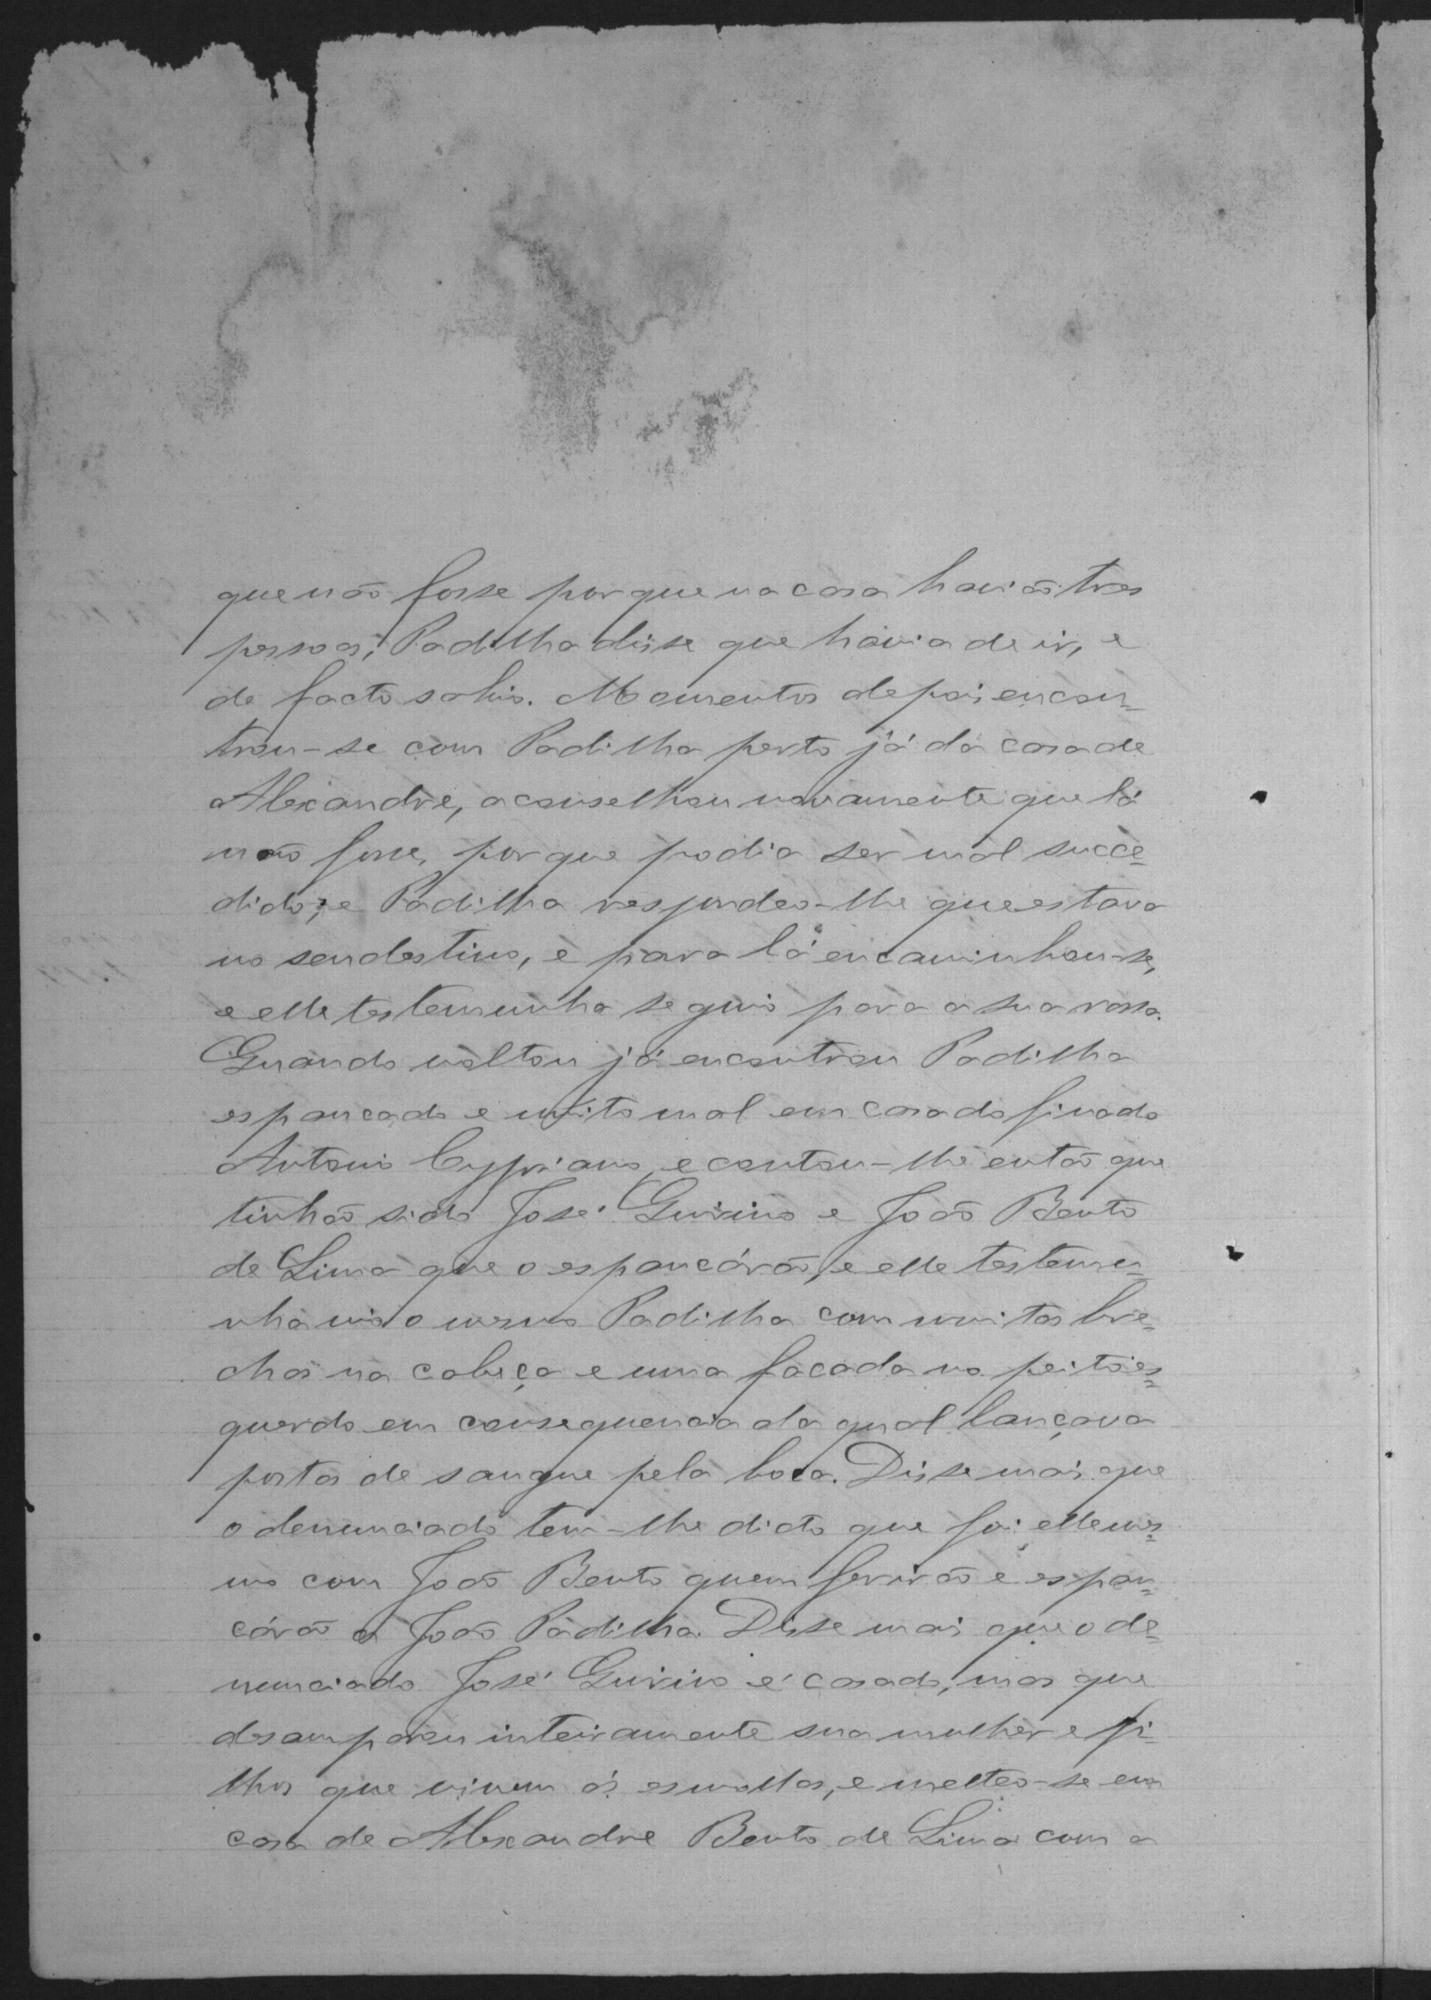 que não fosse porque na casa havião tres
pessoas; Padilha disse que havia de ir, e
de facto sahio. Momentos depois encon-
trou-se com Padilha perto já da casa de
Alexandre, aconselhou novamente que lá
não fosse, porque podia ser mal succe-
dido; e Padilha respondeo-lhe que estava
no seu destino, e para lá encaminhou-se,
e elle testemunha seguio para a sua rossa.
Quando voltou já encontrou Padilha
espancado e muito mal em casa do finado
Antonio Cypriano, e contou-lhe então que
tinhão sido José Quirino e João Bento
de Lima que o espancárão, e elle testemu-
nha vio o mesmo Padilha com muitas bre-
chas na cabeça e uma facada no peito es-
querdo em consequencia da qual lançava
postas de sangue pela boca. Disse mais que
o denunciado tem-lhe dicto que foi elle mes-
mo com João Bento quem ferirão e espan-
cárão a João Padilha. Disse mais que o de-
nunciado José Quirino é casado, mas que
desamparou inteiramente sua mulher e fi-
lhos que vivem ás esmollas, e metteo-se em
casa de Alexandre Bento de Lima com a